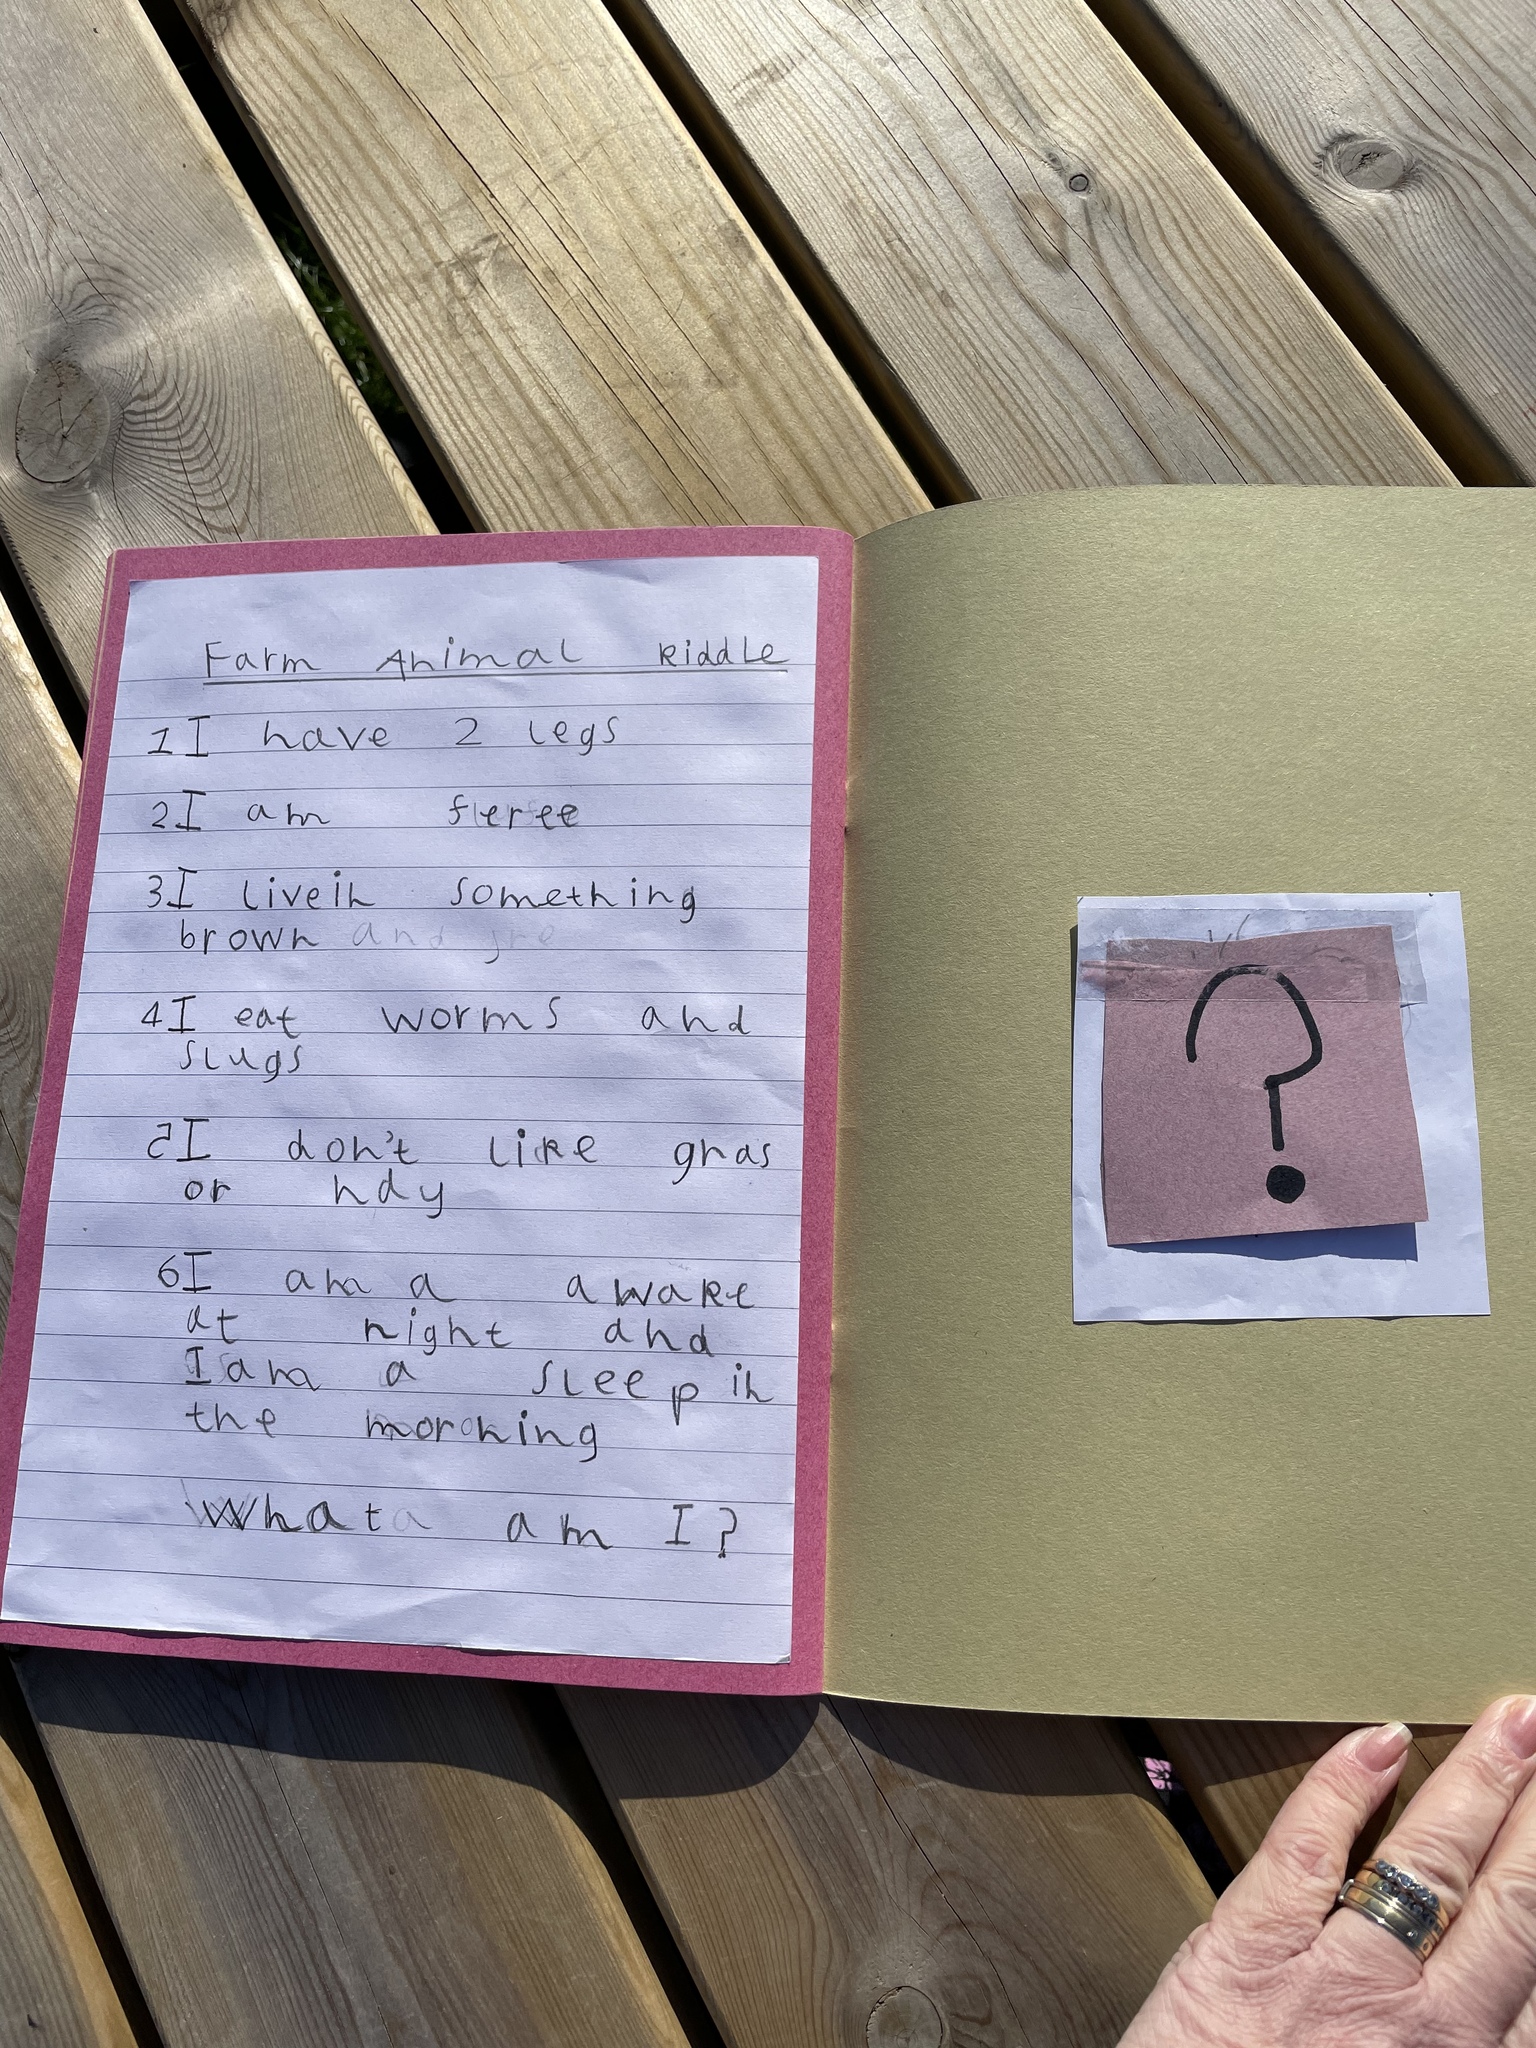 Farm Animal Riddle
1 I have 2 legs
2 I am fieree
3 I livein something
brown and gre
4 I eat worms and
slugs
5 I don't like gras
or hdy
6 I am a awake
at night and
I am a sleep in
the morning
What am I?
?